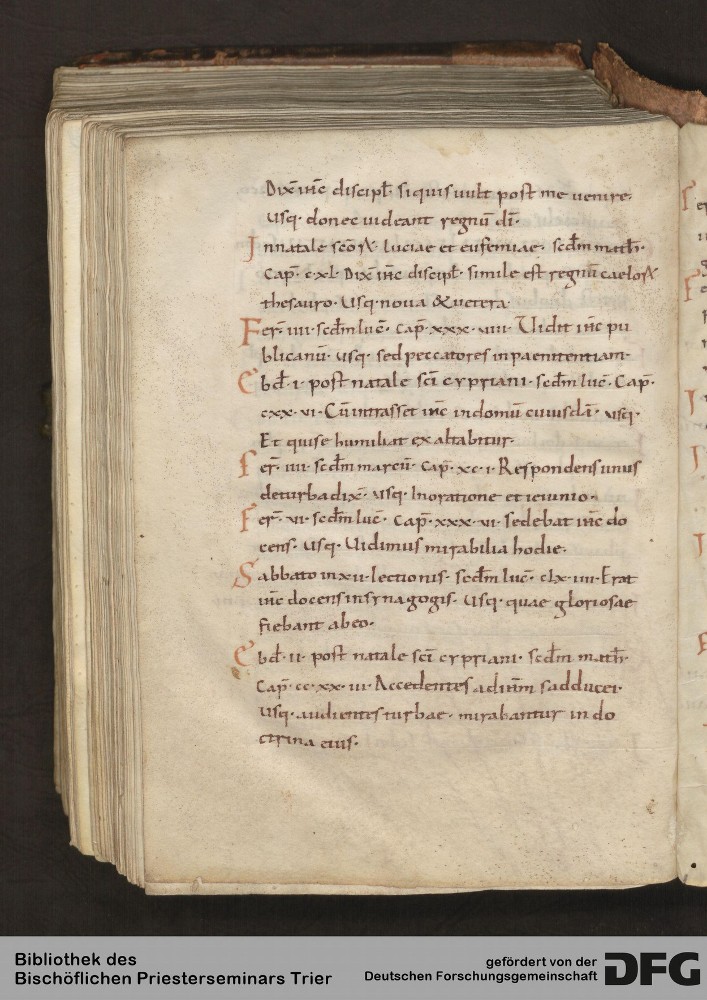 Dix̄ ihc̄ discipł. siquis uult post me uenire.
Usq. donec uideant regnū dī.
Innatale scōꝝ. luciae et eufemiae. scd̄m math̄.
Cap̄. c.xl. Dix̄ ihc̄ discipł. simile est regnū caeloꝝ
thesauro. Usq. noua & uetera.
Fer̄. iiii. scd̄m luc̄. Cap̄. xxx.viiii. Uidit ihc̄ pu
blicanū. usq. sed peccatores inpaenitentiam.
Ebd̄. i. post natale scī cypriani. scd̄m luc̄. Cap̄.
cxx.vi. Cū intrasset ihc̄ indomū cuiusdā. usq.
Et quise humiliat exaltabitur.
Fer̄. iiii. scd̄m marcū. Cap̄. xc.i. Respondens unus
deturba dix̄. usq. Inoratione et ieiunio.
Fer̄. vi. scd̄m luc̄. Cap̄. xxx.vi. sedebat ihc̄ do
cens. usq. Uidimus mirabilia hodie.
Sabbato inxii. lectionis. scd̄m luc̄. clx.iiii. Erat
ihc̄ docens insynagogis. usq. quae gloriosae
fiebant abeo.
Ebd̄. ii. post natale scī cypriani. scd̄m math̄.
Cap̄. cc.xx.iii. Accedentes ad ihm̄ sadducei.
usq. audientes turbae. mirabantur in do
ctrina eius.
Bibliothek des
Bischöflichen Priesterseminars Trier
gefördert von der
Deutschen Forschungsgemeinschaft
DFG